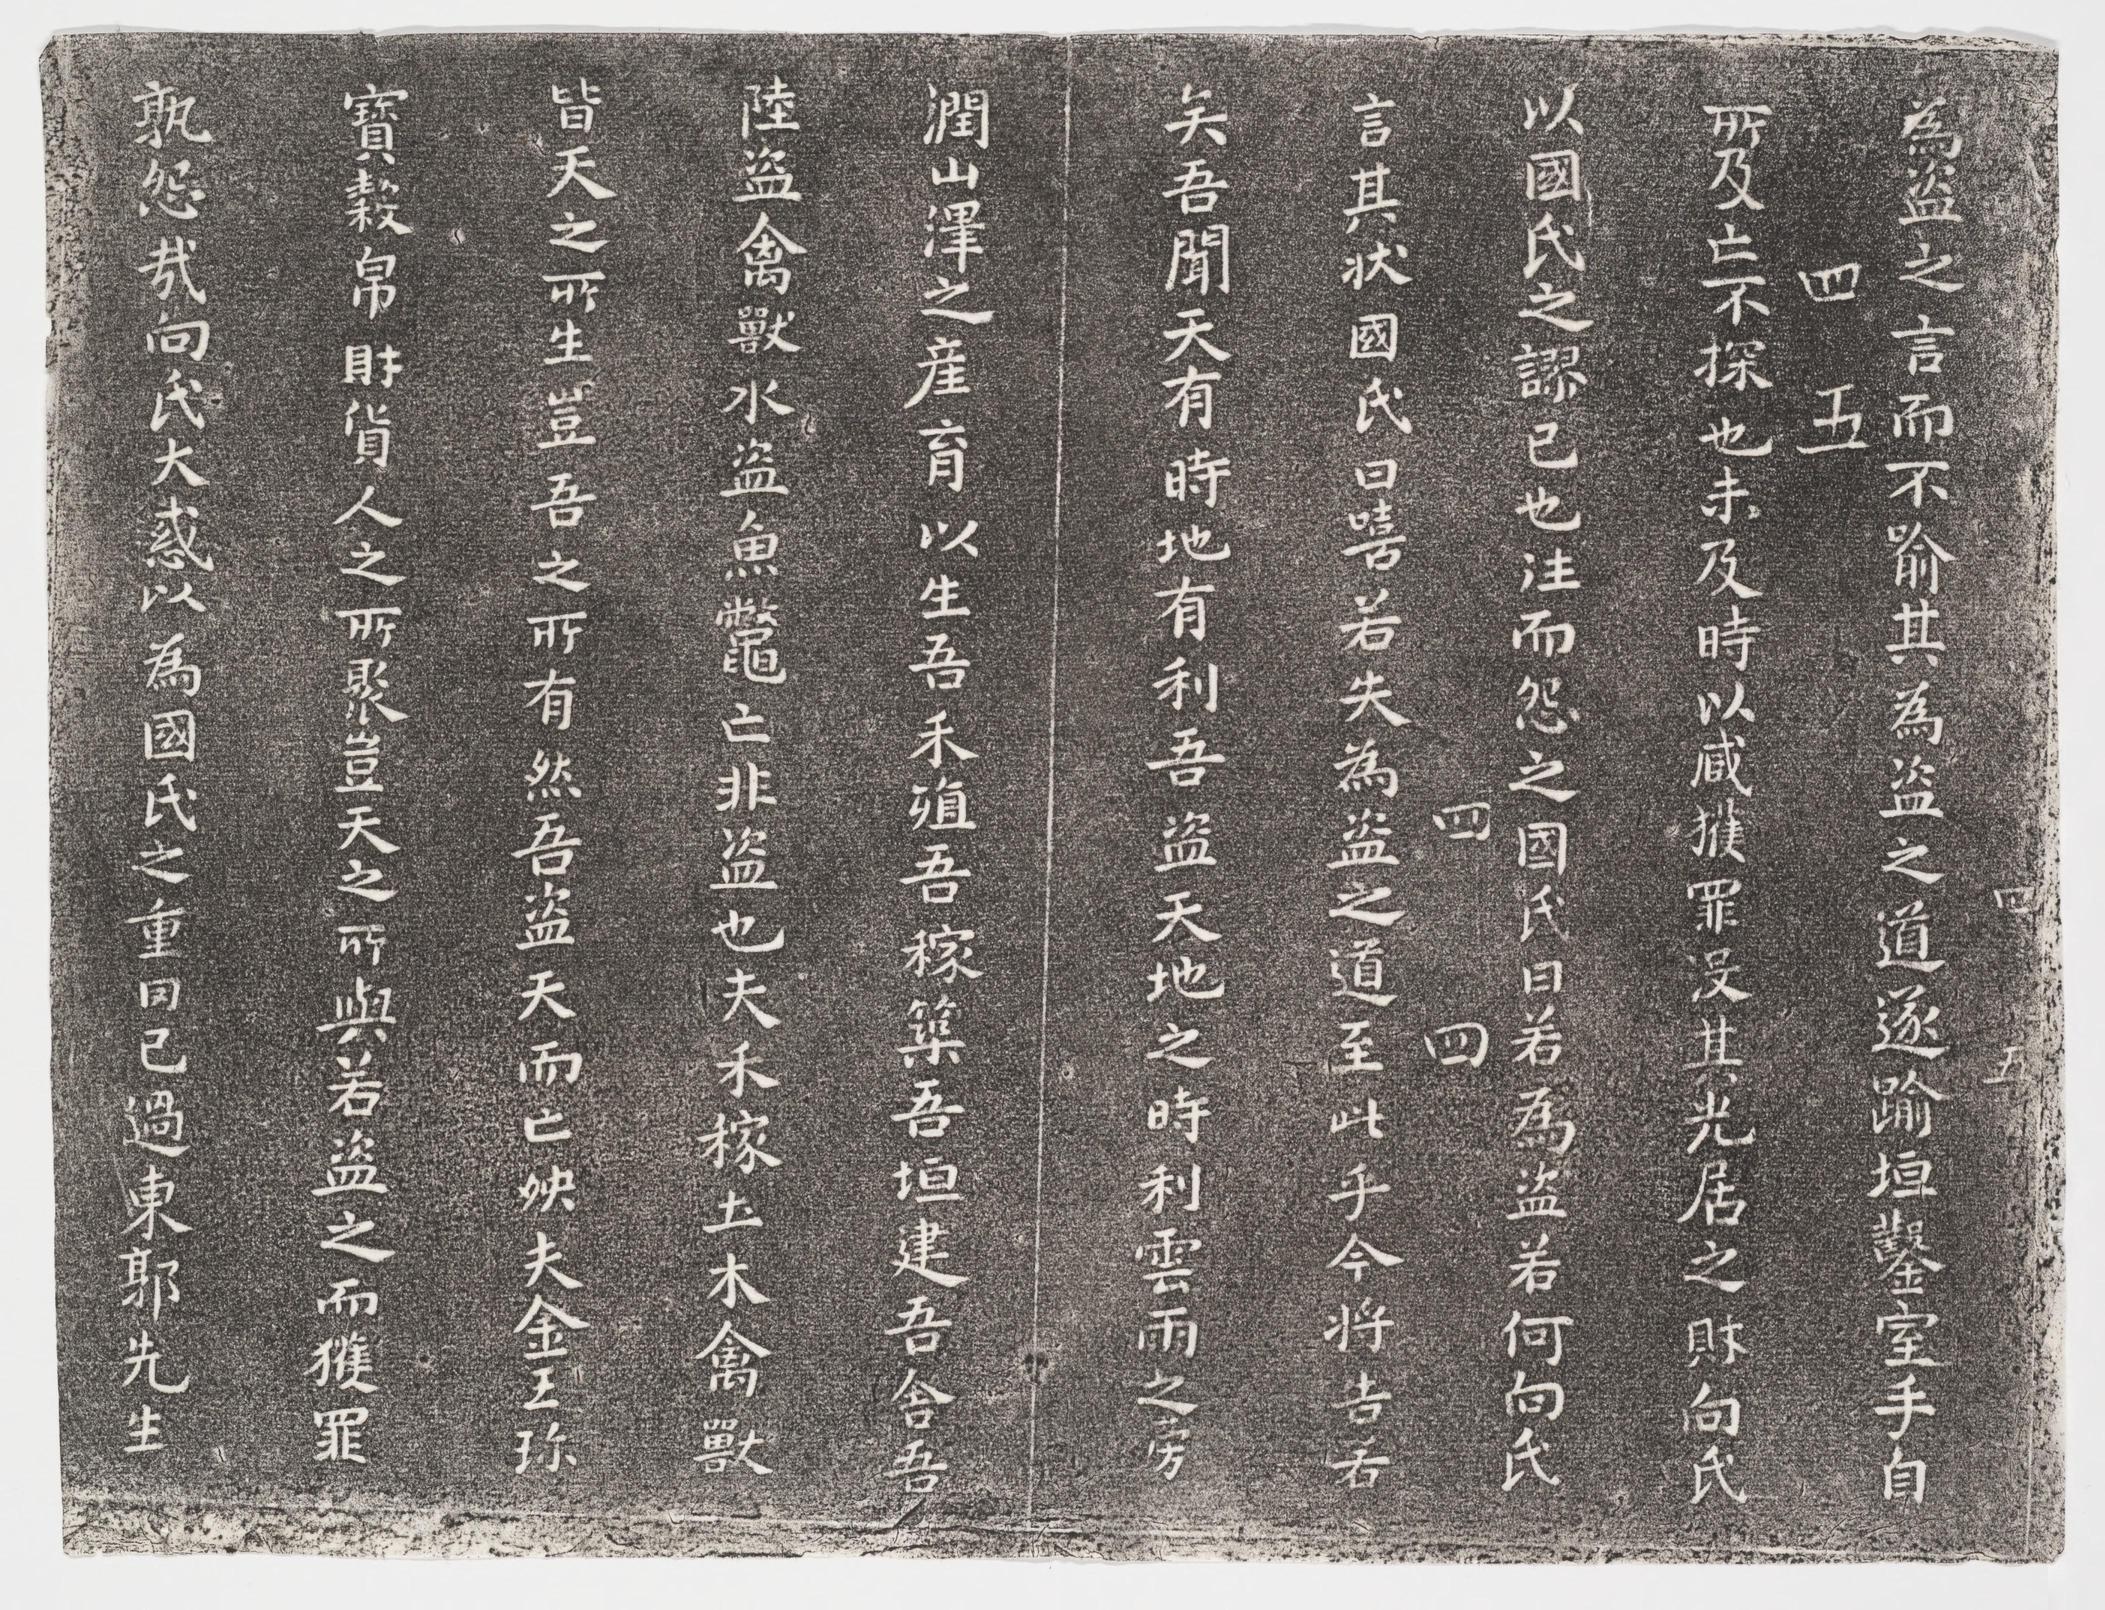 四五
為盜之言而不喻其為盜之道遂踰垣鑿室手自
四五
所及亡不探也未及時以臧獲罪没其先居之財向氏
以國氏之謬已也往而怨之國氏曰若為盜若何向氏
四四
言其狀國氏曰嘻若失為盜之道至此乎今將告若
矣吾聞天有時地有利吾盜天地之時利雲雨之滂
潤山澤之產育以生吾禾殖吾稼築吾垣建吾舍吾
陸盜禽獸水盜魚鼈亡非盜也夫禾稼土木禽獸
皆天之所生豈吾之所有然吾盜天而亡殃夫金玉珍
寶穀帛財貨人之所聚豈天之所與若盜之而獲罪
孰怨哉向氏大惑以為國氏之重罔已過東郭先生